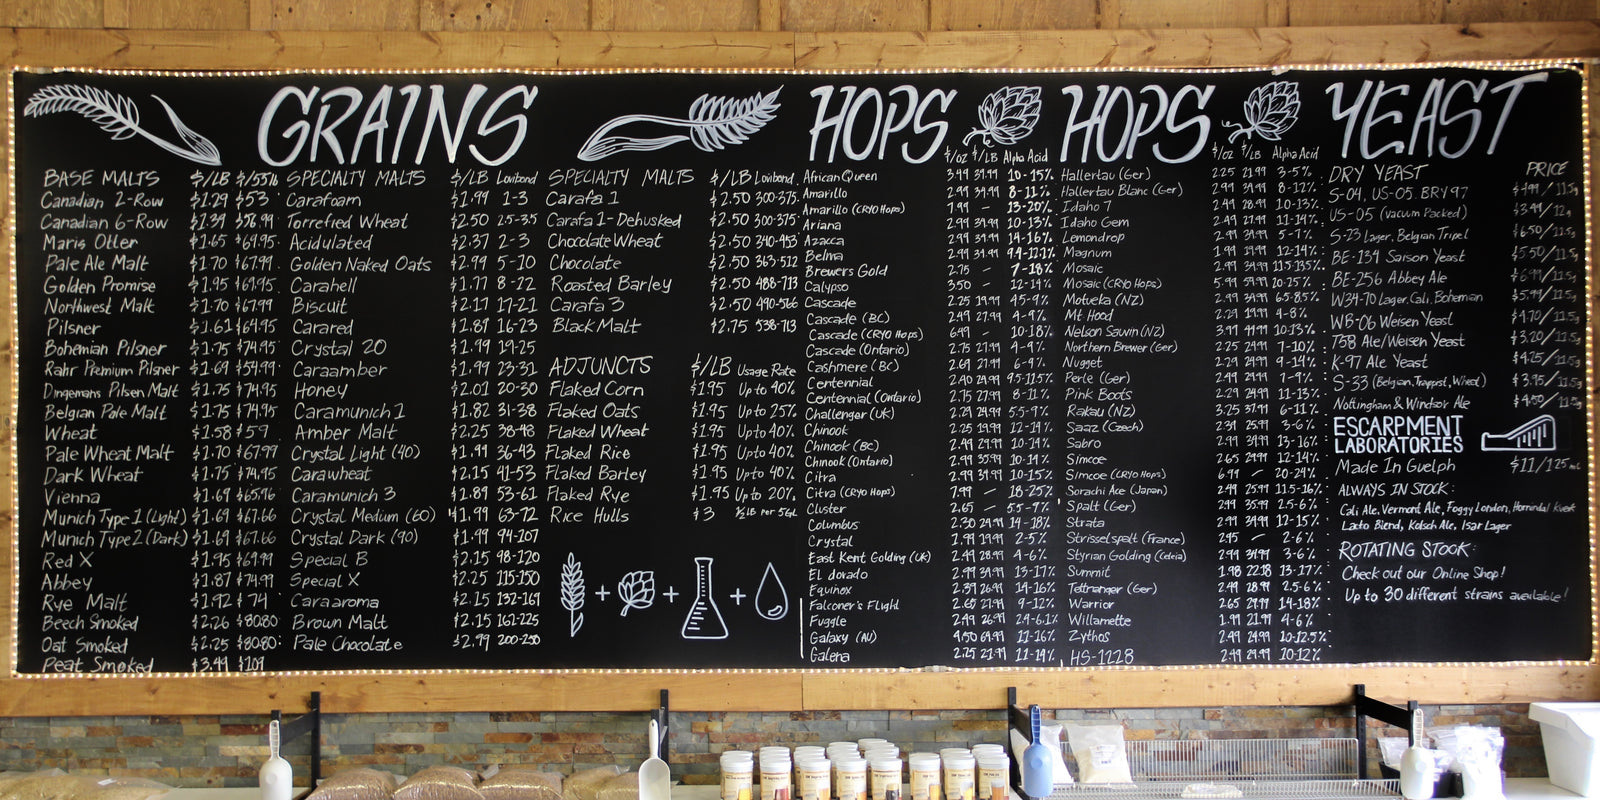 GRAINS
BASE MALTS $/LB $/55lb
Canadian 2-Row $1.29 $53
Canadian 6-Row $1.39 $58.99
Maris Otter $1.65 $69.95
Pale Ale Malt $1.70 $67.99
Golden Promise $1.95 $69.95
Northwest Malt $1.70 $67.99
Pilsner $1.61 $64.95
Bohemian Pilsner $1.75 $74.95
Rahr Premium Pilsner $1.69 $59.99
Dingemans Pilsen Malt $1.75 $74.95
Belgian Pale Malt $1.75 $74.95
Wheat $1.58 $59
Pale Wheat Malt $1.70 $67.99
Dark Wheat $1.75 $74.95
Vienna $1.69 $65.96
Munich Type 1 (Light) $1.69 $67.66
Munich Type 2 (Dark) $1.69 $67.66
Red X $1.95 $69.99
Abbey $1.87 $74.99
Rye Malt $1.92 $74
Beech Smoked $2.26 $80.80
Oat Smoked $2.25 $80.80
Peat Smoked $3.99 $109
SPECIALTY MALTS $/LB Lovibond
Carafoam $1.99 1-3
Torrefred Wheat $2.50 2.5-3.5
Acidulated $2.37 2-3
Golden Naked Oats $2.99 5-10
Carahell $1.77 8-22
Biscuit $2.17 17-21
Carared $1.87 16-23
Crystal 20 $1.99 19-25
Caraamber $1.99 23-31
Honey $2.01 20-30
Caramunich 1 $1.82 31-38
Amber Malt $2.25 38-48
Crystal Light (40) $1.99 36-43
Carawheat $2.15 41-53
Caramunich 3 $1.89 53-61
Crystal Medium (60) $1.99 63-72
Crystal Dark (90) $1.99 94-107
Special B $2.15 98-120
Special X $2.25 115-150
Caraaroma $2.15 132-169
Brown Malt $2.15 162-225
Pale Chocolate $2.99 200-250
SPECIALTY MALTS $/LB Lovibond
Carafa 1 $2.50 300-375
Carafa 1- Dehusked $2.50 300-375
Chocolate Wheat $2.50 340-453
Chocolate $2.50 363-512
Roasted Barley $2.50 488-713
Carafa 3 $2.50 490-566
Black Malt $2.75 538-713
ADJUNCTS $/LB Usage Rate
Flaked Corn $1.95 Up to 40%
Flaked Oats $1.95 Up to 25%
Flaked Wheat $1.95 Up to 40%
Flaked Rice $1.95 Up to 40%
Flaked Barley $1.95 Up to 40%
Flaked Rye $1.95 Up to 20%
Rice Hulls $3 ½ lb Per 5GL
+ + +
HOPS
$/OZ $/LB Alpha Acid
African Queen 3.49 39.99 10-15%
Amarillo 2.99 39.99 8-11%
Amarillo (CRYO Hops) 7.99 - 13-20%
Ariana 2.99 39.99 10-13%
Azacca 2.99 39.99 14-16%
Belma 2.99 31.99 9.4-12.1%
Brewers Gold 2.75 - 7-18%
Calypso 3.50 - 12-14%
Cascade 2.25 19.99 4.5-9%
Cascade (BC) 2.49 27.99 4-9%
Cascade (CRYO Hops) 6.49 - 10-18%
Cascade (Ontario) 2.75 27.99 4-9%
Cashmere (BC) 2.69 27.99 6-9%
Centennial 2.40 24.99 9.5-11.5%
Centennial (Ontario) 2.75 27.99 8-11%
Challenger (UK) 2.29 24.99 5.5-9%
Chinook 2.25 19.99 12-14%
Chinook (BC) 2.49 29.99 10-14%
Chinook (Ontario) 2.99 35.99 10-14%
Citra 2.99 39.99 10-15%
Citra (CRYO Hops) 7.99 - 18-25%
Cluster 2.65 - 5.5-9%
Columbus 2.30 24.99 14-18%
Crystal 1.99 19.99 2-5%
East Kent Golding (UK) 2.49 28.99 4-6%
El dorado 2.99 39.99 13-17%
Equinox 2.39 26.99 14-16%
Falconer's Flight 2.60 27.99 9-12%
Fuggle 2.49 26.99 2.4-6.1%
Galaxy (AU) 4.50 64.99 11-16%
Galena 2.75 21.99 11-14%
HOPS
$/OZ $/LB Alpha Acid
Hallertau (Ger) 2.25 21.99 3-5%
Hallertau Blanc (Ger) 2.99 34.99 8-12%
Idaho 7 2.49 28.99 10-13%
Idaho Gem 2.49 27.99 11-14%
Lemondrop 2.99 34.99 5-7%
Magnum 1.99 19.99 12-14%
Mosaic 2.99 34.99 11.5-13.5%
Mosaic (CRYO Hops) 5.99 59.99 20-25%
Motueka (NZ) 2.99 34.99 6.5-8.5%
Mt Hood 2.29 19.99 4-8%
Nelson Sauvin (NZ) 3.99 49.99 10-13%
Northern Brewer (Ger) 2.25 24.99 7-10%
Nugget 2.29 24.99 9-14%
Perle (Ger) 2.49 29.99 7-9%
Pink Boots 2.29 24.99 11-13%
Rakau (NZ) 3.25 37.99 6-11%
Saaz (Czech) 2.39 25.99 3-6%
Sabro 2.99 34.99 13-16%
Simcoe 2.65 29.99 12-14%
Simcoe (CRYO Hops) 6.99 - 20-24%
Sorachi Ace (Japan) 2.49 25.99 11.5-16%
Spalt (Ger) 2.99 35.99 2.5-6%
Strata 2.99 39.99 12-15%
Strisselspalt (France) 2.95 - 2-6%
Styrian Golding (Celeia) 2.99 34.99 3-6%
Summit 1.98 22.18 13-17%
Tettnanger (Ger) 2.49 28.99 2.5-6%
Warrior 2.65 29.99 14-18%
Willamette 1.99 21.99 4-6%
Zythos 2.49 24.99 10-12.5%
HS-1228 2.99 29.99 10-12%
YEAST
DRY YEAST PRICE
S-04, US-05, BRY97 $4.99/11.5g
US-05 (Vacuum Packed) $3.99/12g
S-23 Lager, Belgian Tripel $6.50/11.5g
BE-134 Saison Yeast $5.50/11.5g
BE-256 Abbey Ale $6.99/11.5g
W34-70 Lager, Cali, Bohemian $5.99/11.5g
WB-06 Weisen Yeast $4.70/11.5g
T58 Ale/Weisen Yeast $3.20/11.5g
K-97 Ale Yeast $4.25/11.5g
S-33 (Belgian, Trappist, Wheat) $3.95/11.5g
Nottingham & Windsor Ale $4.50/11.5g
ESCARPMENT
LABORATORIES
Made In Guelph $11/125mL
ALWAYS IN STOCK:
Cali Ale, Vermont Ale, Foggy London, Hornindal Kveik
Lacto Blend, Kolsch Ale, Isar Lager
ROTATING STOCK:
Check out our Online Shop!
Up to 30 different strains available!